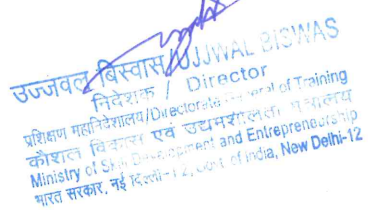 उज्जवल बिस्वास/UJJWAL BISWAS
निदेशक / Director
प्रशिक्षण महानिदेशालय/Directorate General of Training
कौशल विकास एवं उद्यमशीलता मंत्रालय
Ministry of Skill Development and Entrepreneurship
भारत सरकार, नई दिल्ली-12, Govt. of India, New Delhi-12